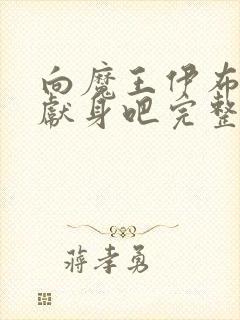 向魔王伊布
献身吧完整
蒋孝勇